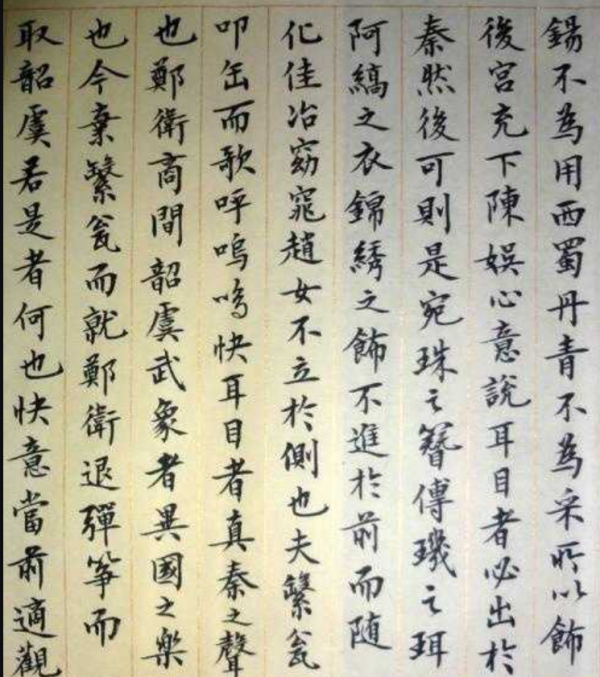 錫不為用西蜀丹青不為采所以飾
後宮充下陳娛心意說耳目者必出於
秦然後可則是宛珠之簪傅璣之珥
阿縞之衣錦綉之飾不進於前而随
化佳冶窈窕趙女不立於側也夫繫瓮
叩缶而歌呼嗚嗚快耳目者真秦之聲
也鄭衛商間韶虞武象者異國之樂
也今棄繫瓮而就鄭衛退彈箏而
取韶虞若是者何也快意當前適觀